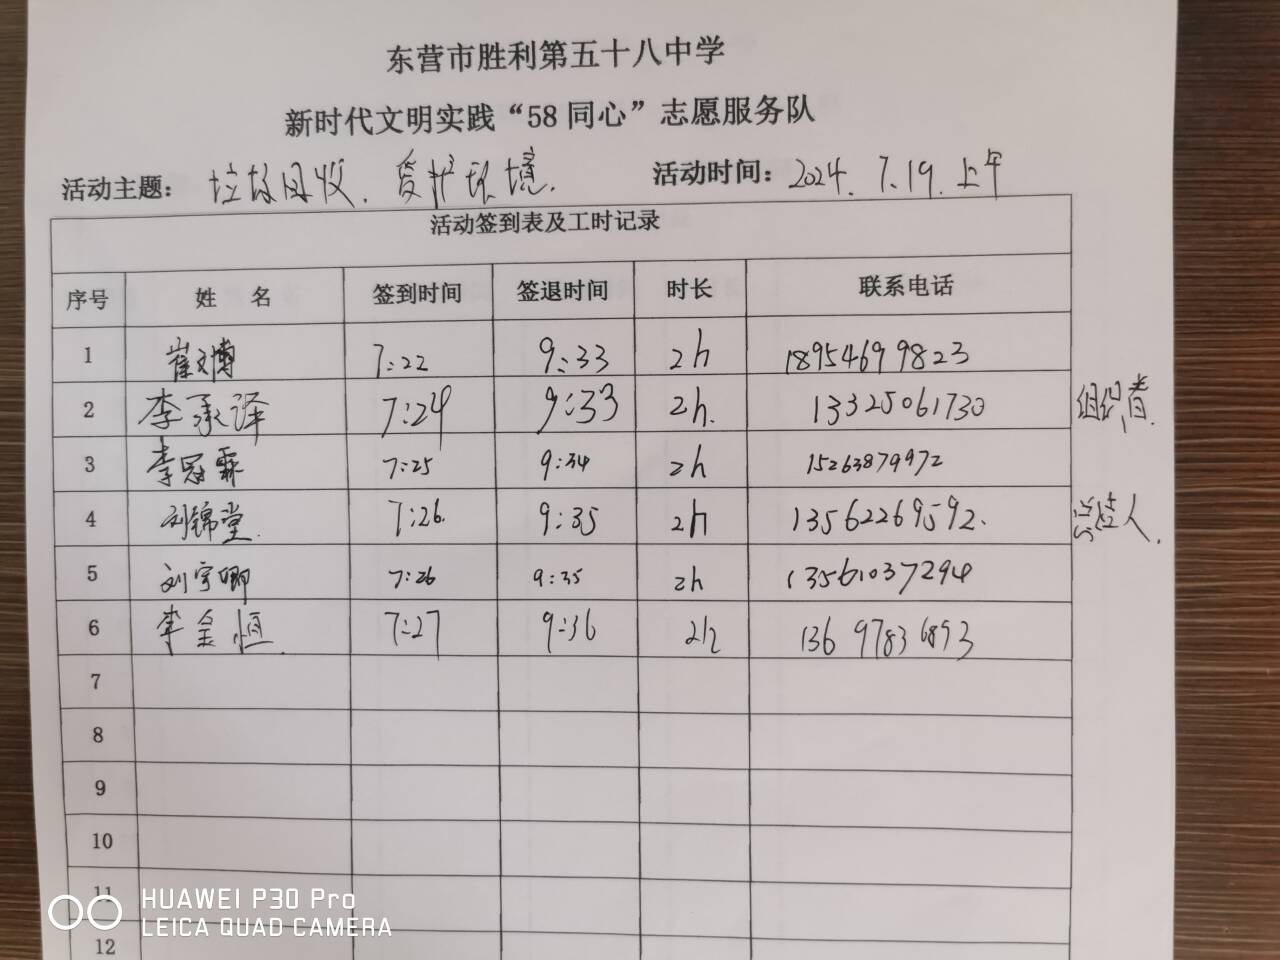 东营市胜利第五十八中学
新时代文明实践“58 同心”志愿服务队
活动主题：垃圾回收．爱护环境． 活动时间：2024．7．19．上午
活动签到表及工时记录
序号 姓 名 签到时间 签退时间 时长 联系电话
1 崔文博 7:22 9:33 2h 18954699823
2 李承泽 7:24 9:33 2h. 13325061730 组织者．
3 李冠霖 7:25 9:34 2h 15263879972
4 刘锦堂． 7:26. 9:35 2h 13562269592. 总结人．
5 刘宇卿 7:26 9:35 2h 13561037294
6 李金恒． 7:27 9:36 2h 13697836893
7
8
9
10
11
12
HUAWEI P30 Pro
LEICA QUAD CAMERA